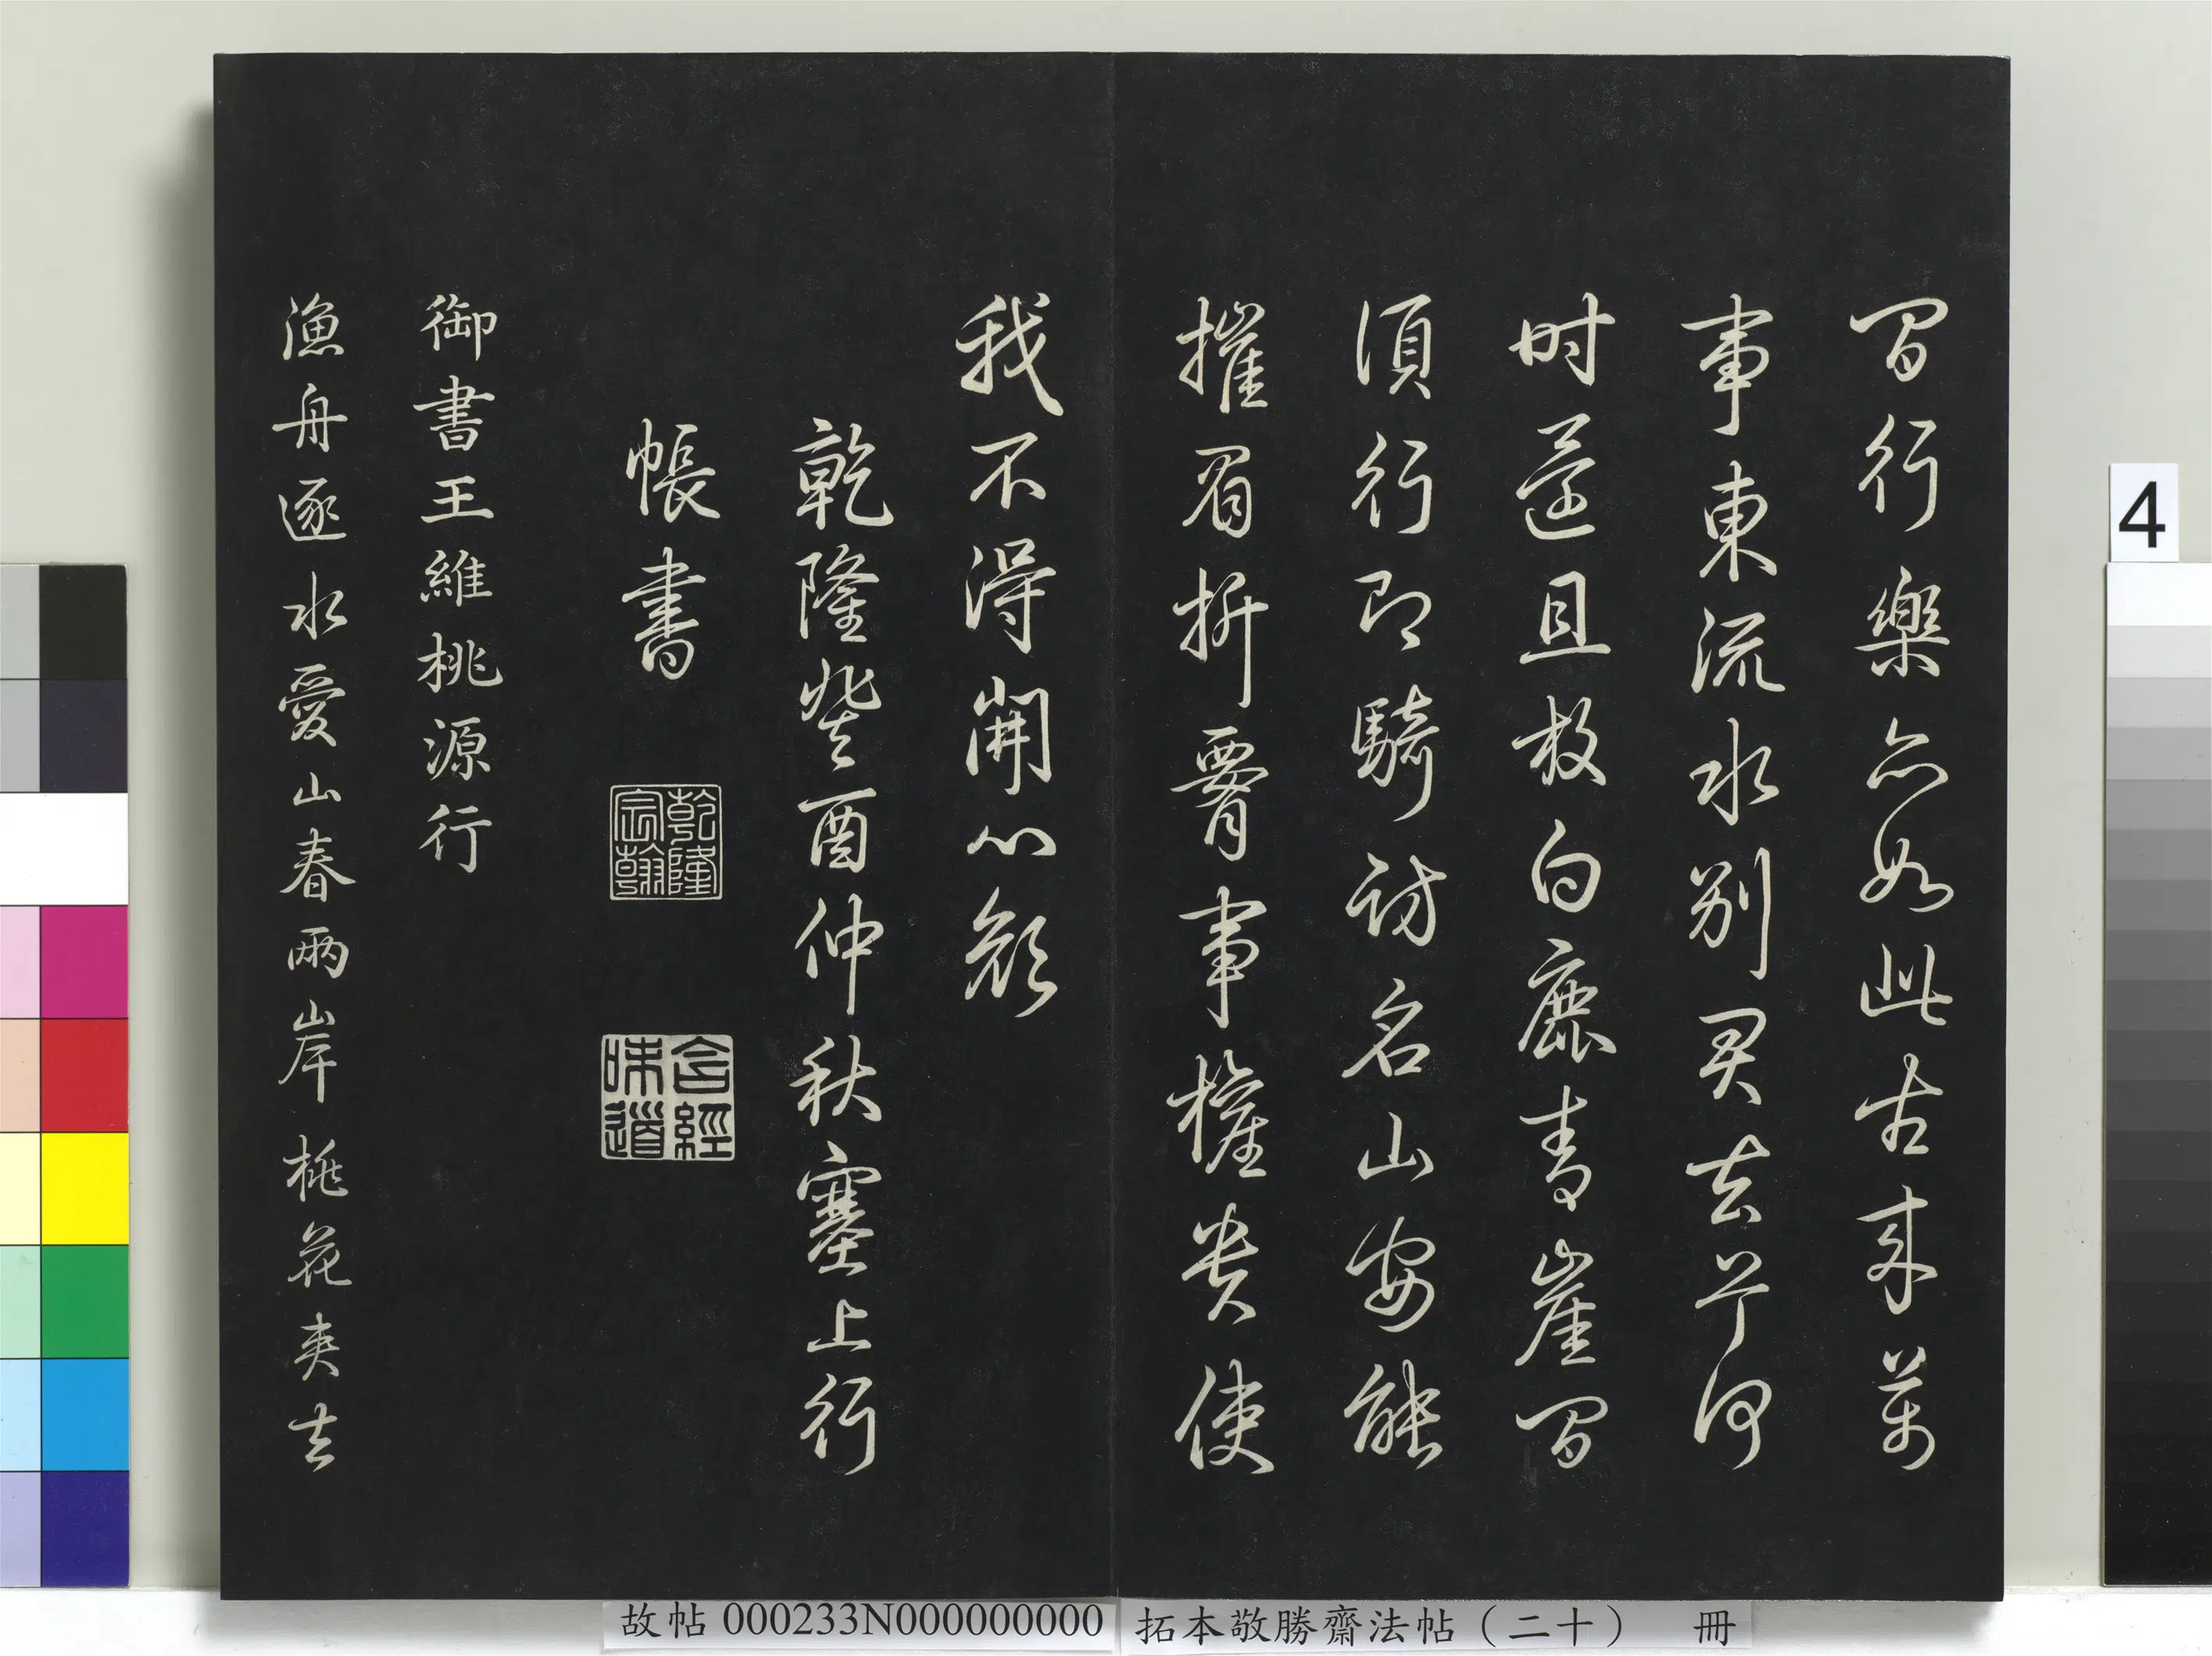 間行樂亦如此古來萬
事東流水別君去兮何
时還且放白鹿青崖間
須行即騎訪名山安能
摧眉折腰事權貴使
我不得開心顏
乾隆癸酉仲秋塞上行
帳書
乾隆宸翰
含經味道
御書王維桃源行
漁舟逐水愛山春兩岸桃花夾去
故帖000233N000000000
拓本敬勝齋法帖（二十） 冊
4